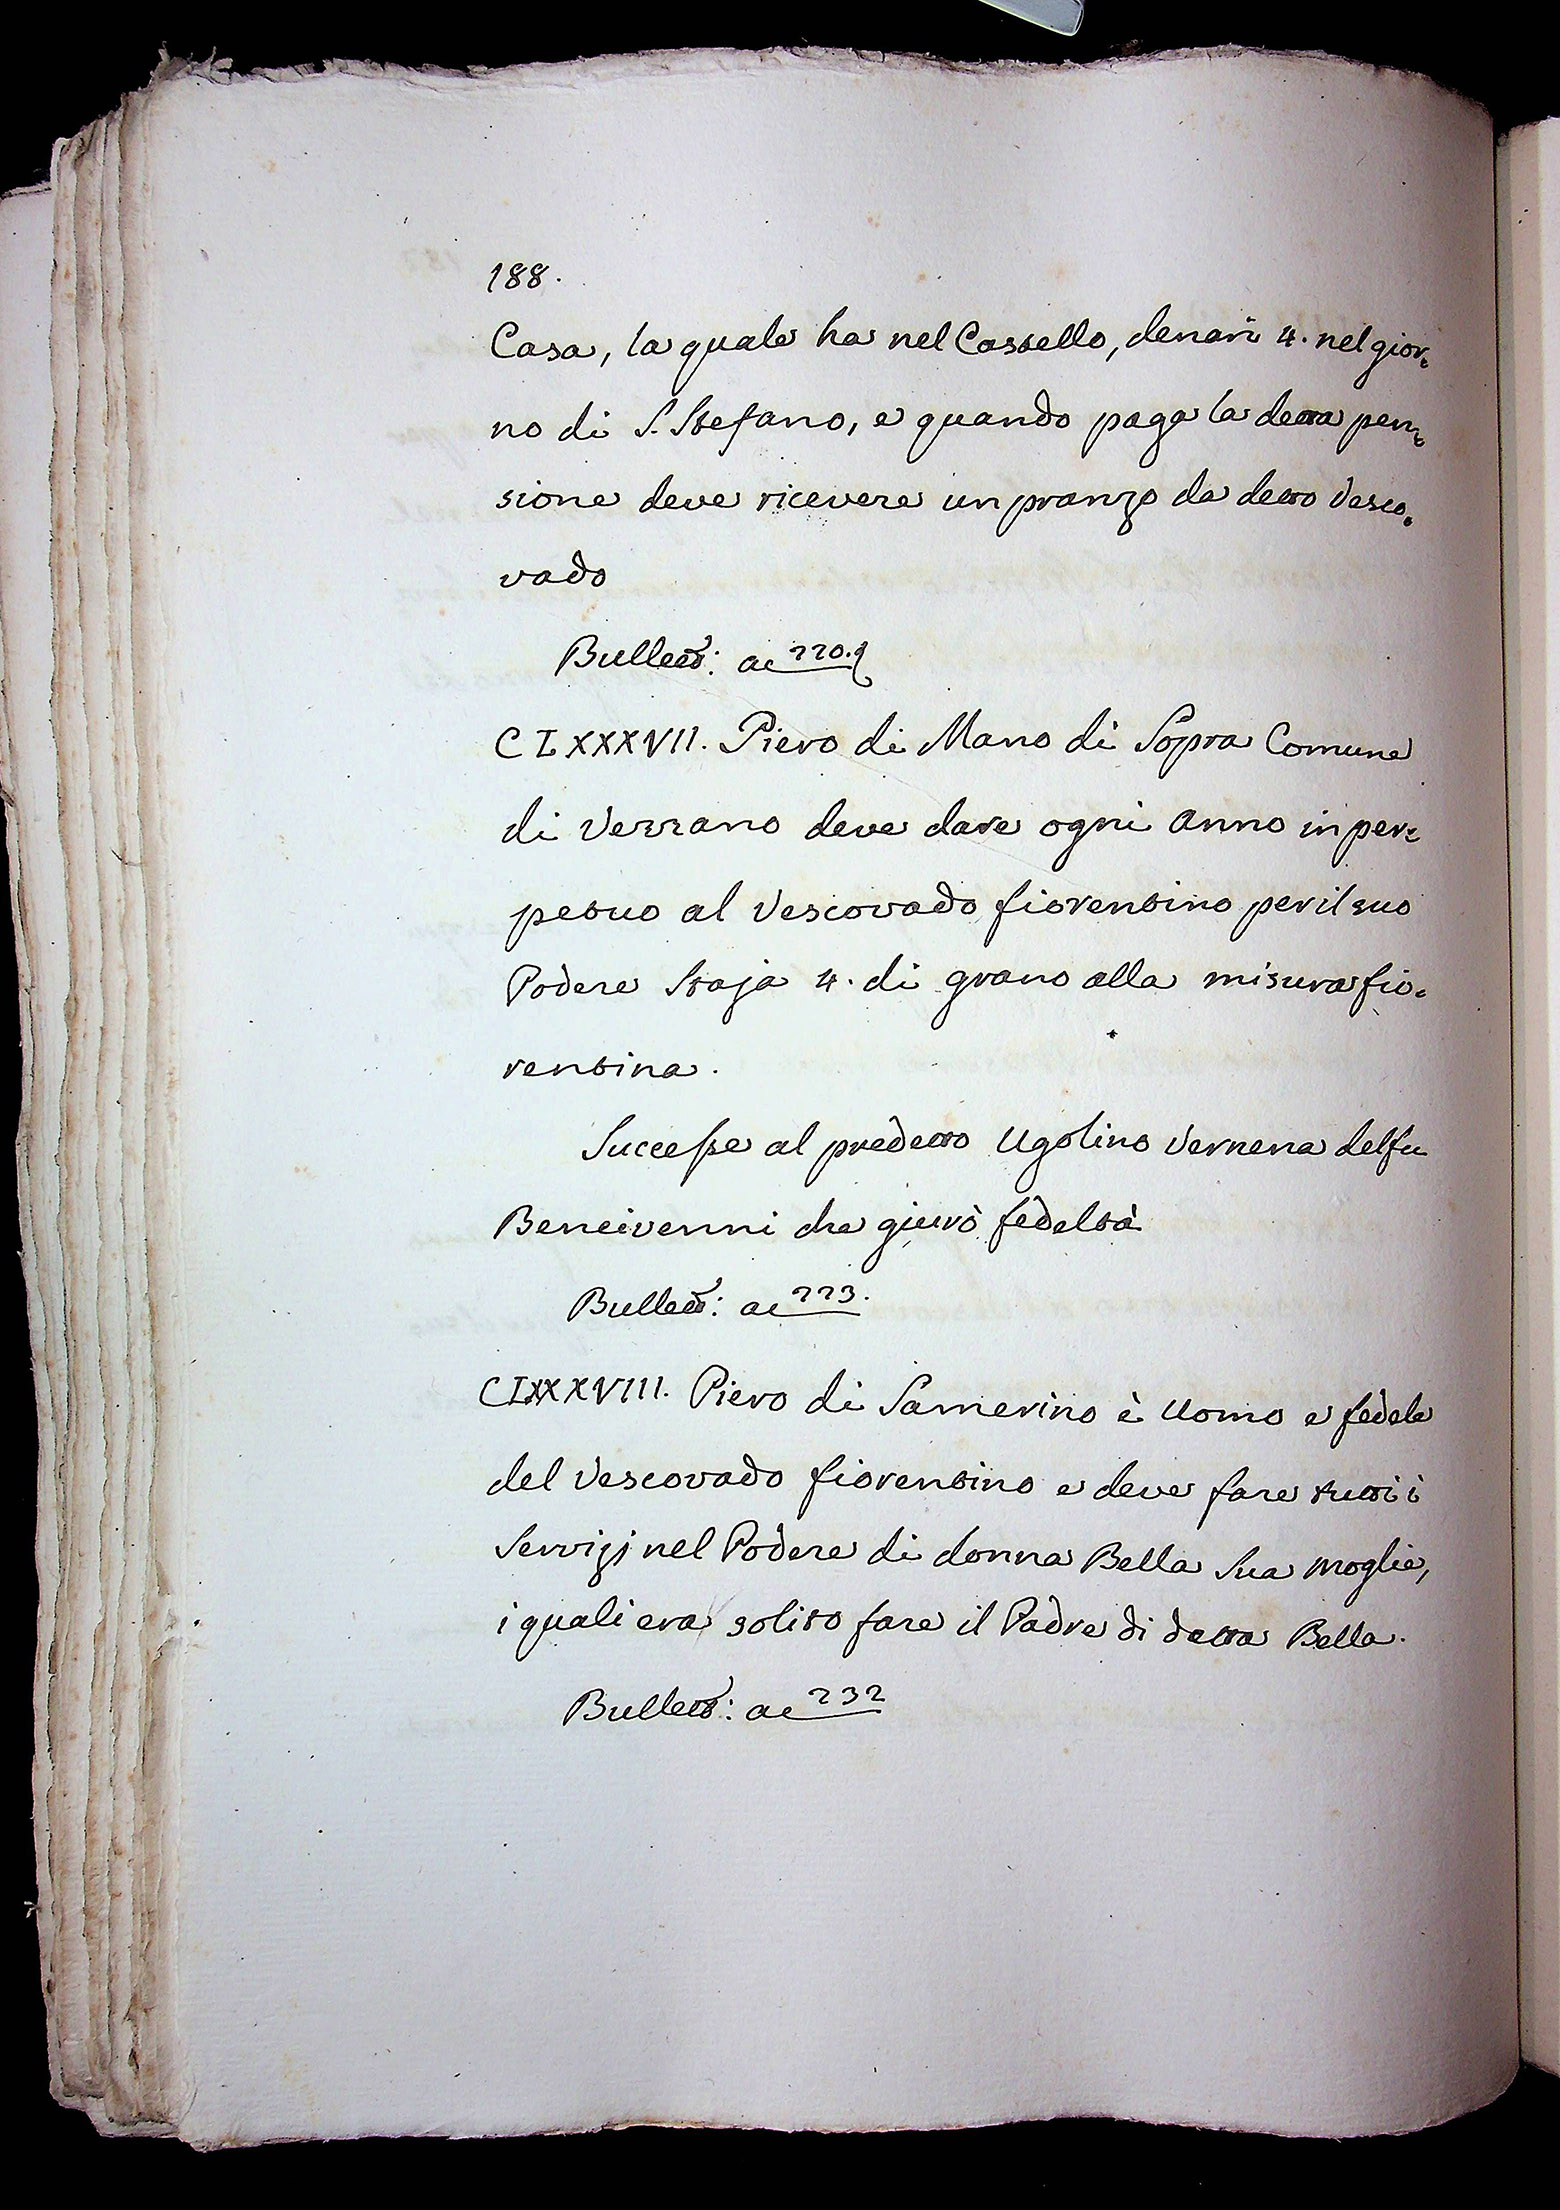 188.
Casa, la quale ha nel Castello, denari 4. nel gior=
no di S. Stefano, e quando paga la detta pen=
sione deve ricevere un pranzo da detto Vesco=
vado
Bullett: ac 220.
CLXXXVII. Piero di Mano di Sopra Comune
di Verrano deve dare ogni Anno in per=
petuo al Vescovado fiorentino per il suo
Podere Staja 4. di grano alla misura fio=
rentina.
Successe al predetto Ugolino Vernena del fu
Bencivenni che giurò fedeltà
Bullett: ac 223.
CLXXXVIII. Piero di Samerino è Uomo e fedele
del Vescovado fiorentino e deve fare tutti i
Servizj nel Podere di donna Bella Sua Moglie,
i quali era solito fare il Padre di detta Bella.
Bullett: ac 232